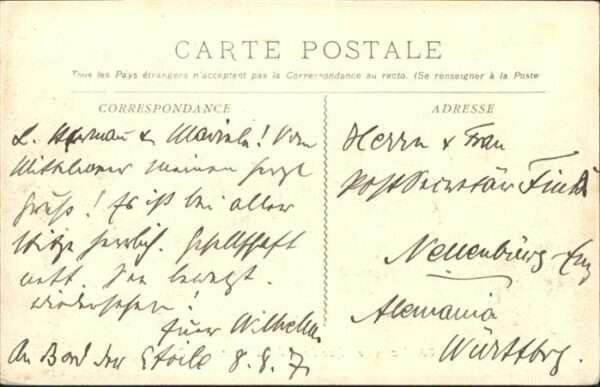 CARTE POSTALE
Tous les Pays étrangers n'acceptent pas la Correspondance au recto. (Se renseigner à la Poste
CORRESPONDANCE
L. Herman & Mariele! Vom
Mittelmeer meinen herzl
Gruß! Es ist bei aller
Hitze herrlich. Gesellschaft
nett. See bewegt.
Wiedersehen!
Euer Wilhelm
An Bord der Etoile 8. 8. 7
ADRESSE
Herrn & Frau
Postsecretär
Neuenbürg Enz
Alemania
Württbrg.